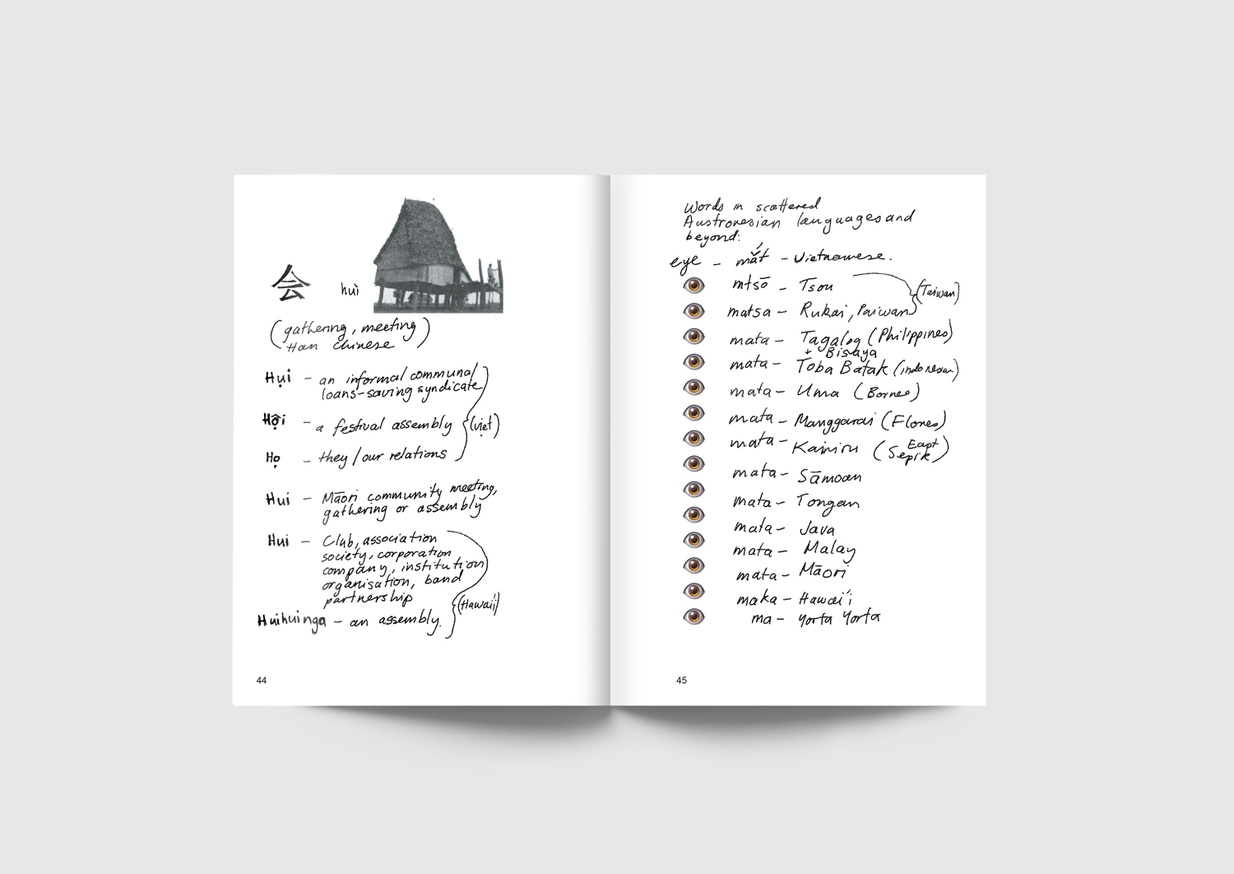 会 huì
(gathering, meeting)
Han Chinese
Hụi – an informal communal
loans-saving syndicate
Hội – a festival assembly (Việt)
Họ – they/our relations
Hui – Māori community meeting,
gathering or assembly
Hui – Club, association
society, corporation
company, institution
organisation, band
partnership
(Hawaií)
Huihuinga – an assembly.
44
Words in scattered
Austronesian languages and
beyond:
eye – mắt – Vietnamese.
mtsō – Tsou
(Taiwan)
matsa – Rukai, Paiwan
mata – Tagalog (Philippines)
+ Bisaya
mata – Toba Batak (Indonesian)
mata – Uma (Borneo)
mata – Manggarai (Flores)
mata – Kairiru (East
Sepik)
mata – Sāmoan
mata – Tongan
mata – Java
mata – Malay
mata – Māori
maka – Hawai'i
ma – Yorta Yorta
45